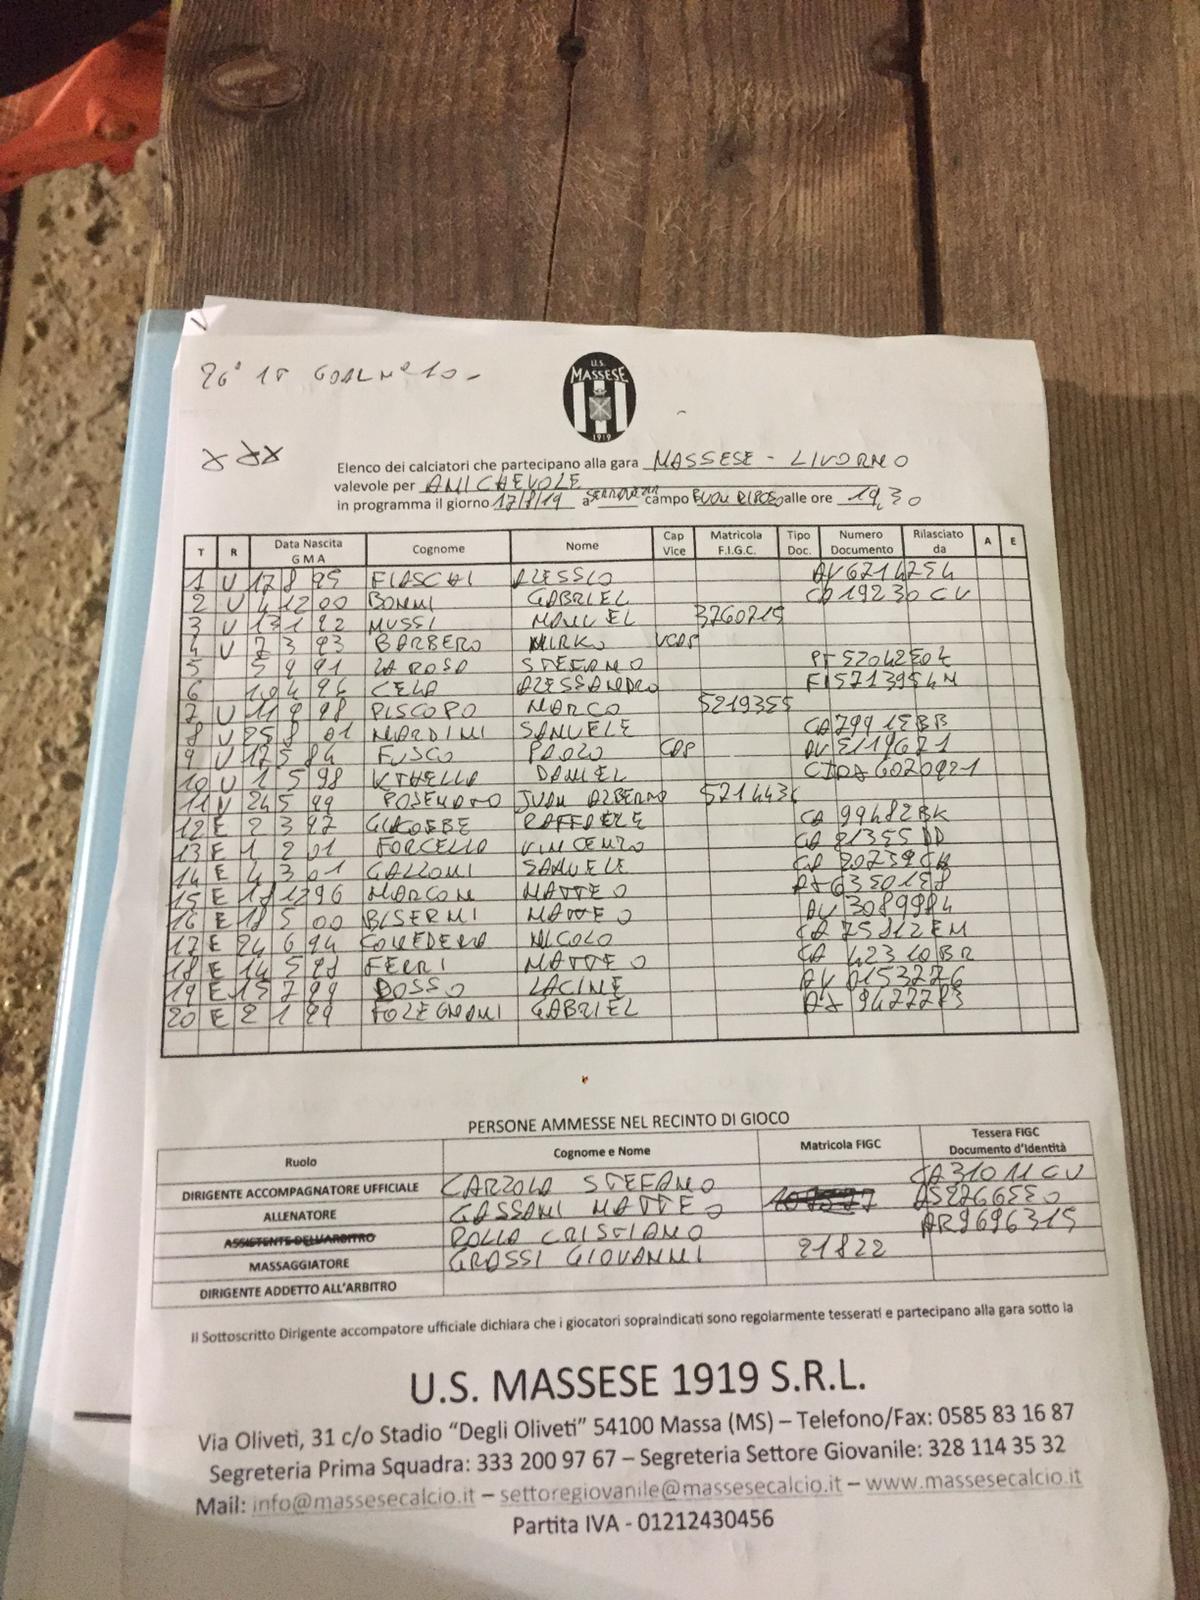 26° 1T GOAL N° 10 -
U.S.
MASSESE
1919
Elenco dei calciatori che partecipano alla gara MASSESE - LIVORNO
valevole per AMICHEVOLE
in programma il giorno 17/8/19 a campo BUON RIPOSO alle ore 19,30
T R Data Nascita G M A Cognome Nome Cap Vice Matricola F.I.G.C. Tipo Doc. Numero Documento Rilasciato da A E
1 U 17 8 95 FIASCHI ALESSIO AV 6214254
2 U 4 12 00 BONNI GABRIEL CA 19230 CV
3 U 13 1 92 MUSSI MANUEL 3760215
4 U 7 3 93 BARBERO MIRKO VCAP
5 5 9 91 LA ROSA STEFANO
6 10 4 96 CELA ALESSANDRO
7 U 11 8 98 PISCOPO MARCO 5219355
8 U 25 8 01 NARDINI SAMUELE CA 79915BB
9 U 17 5 84 FUSCO PAOLO CAP
10 U 1 5 98 KTHELLA DANIEL
11 U 24 5 99 JUAN ALBERTO
12 E 2 3 97 GIACOBBE RAFFAELE CA 99482BK
13 E 1 2 01 FORCELLA VINCENZO CA 21355 DD
14 E 4 3 01 GALLONI SAMUELE
15 E 18 12 96 MARCON MATTEO
16 E 18 5 00 BISERNI MATTEO AV 3089984
17 E 24 6 94 NICOLO CA 75812EM
18 E 14 5 98 FERRI MATTEO CA 42310BR
19 E 15 7 99 DOSSO LACINE AV 0153276
20 E 2 1 99 FOLEGNANI GABRIEL
PERSONE AMMESSE NEL RECINTO DI GIOCO
Ruolo Cognome e Nome Matricola FIGC Tessera FIGC Documento d'Identità
DIRIGENTE ACCOMPAGNATORE UFFICIALE CARZOLA STEFANO CA 31011CV
ALLENATORE GASSANI MATTEO
ASSISTENTE DELL'ARBITRO ROLLA CRISTIANO AR9696315
MASSAGGIATORE GROSSI GIOVANNI 21822
DIRIGENTE ADDETTO ALL'ARBITRO
Il Sottoscritto Dirigente accompatore ufficiale dichiara che i giocatori sopraindicati sono regolarmente tesserati e partecipano alla gara sotto la
U.S. MASSESE 1919 S.R.L.
Via Oliveti, 31 c/o Stadio "Degli Oliveti" 54100 Massa (MS) – Telefono/Fax: 0585 83 16 87
Segreteria Prima Squadra: 333 200 97 67 – Segreteria Settore Giovanile: 328 114 35 32
Mail: info@massesecalcio.it – settoregiovanile@massesecalcio.it – www.massesecalcio.it
Partita IVA - 01212430456